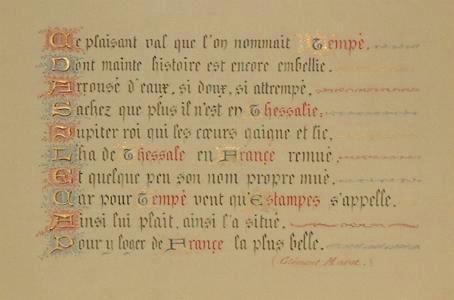 Ce plaisant val que l'on nommait Tempé,
Dont mainte histoire est encore embellie.
Arrousé d'eaux, si doux, si attrempé,
Sachez que plus il n'est en Thessalie:
Jupiter roi qui les cœurs gaigne et lie,
L'ha de Thessale en France remué,
Et quelque peu son nom propre mué,
Car pour Tempé veut qu'Estampes s'appelle.
Ainsi lui plait, ainsi l'a situé,
Pour y loger de France la plus belle.
(Clément Marot.)